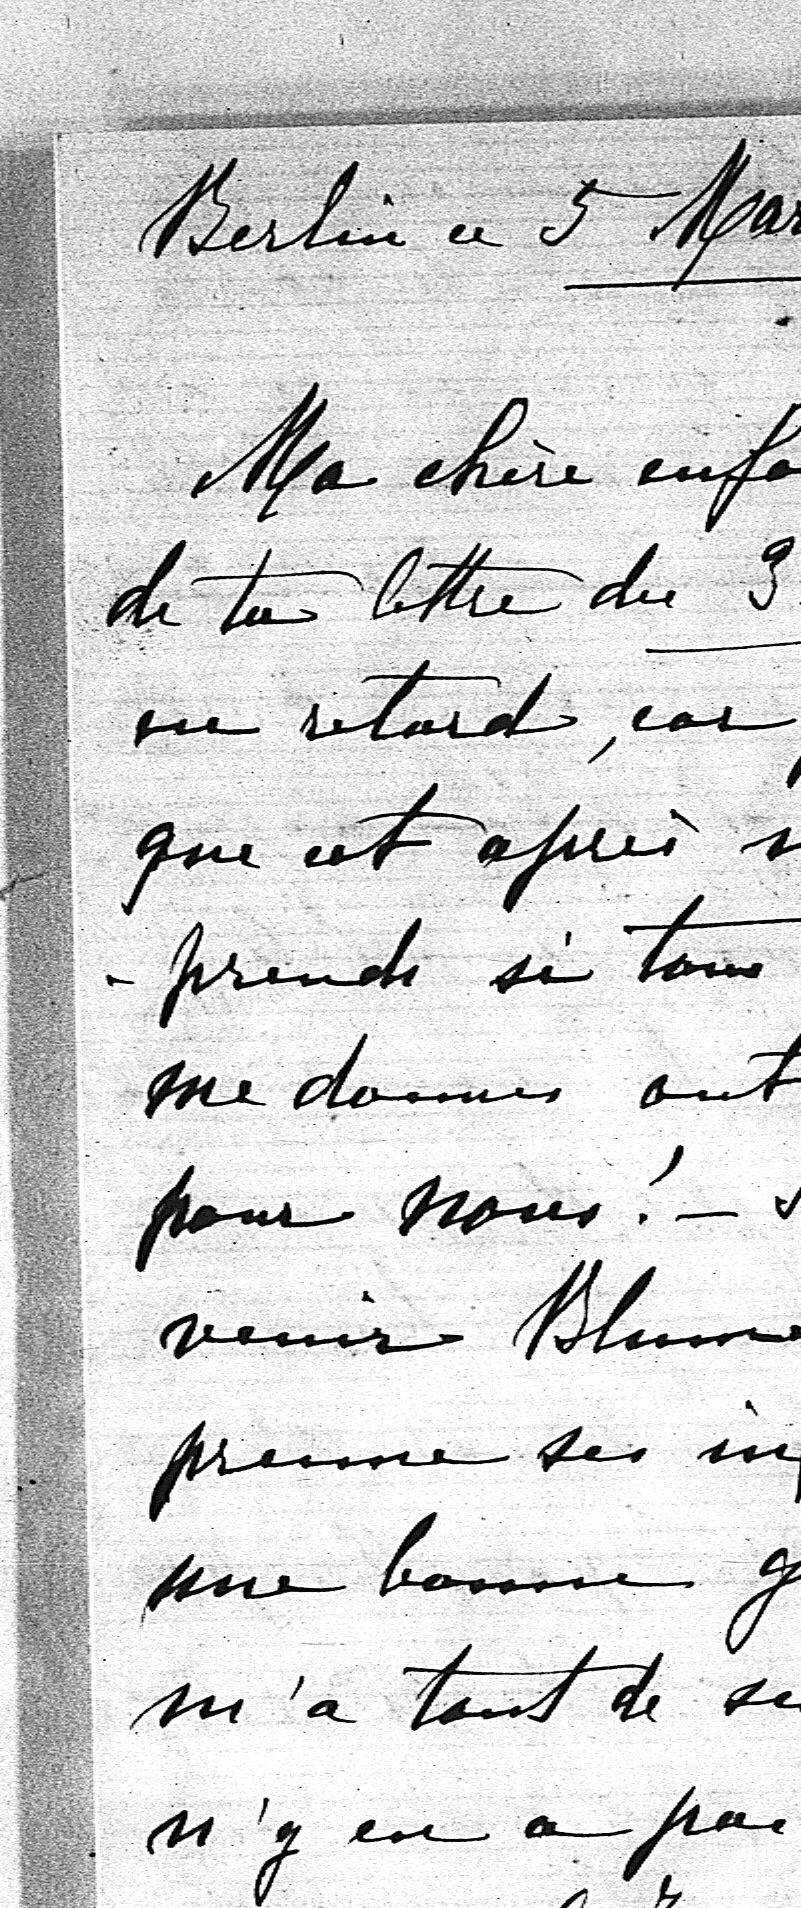 Berlin ce 5 Mar
Ma chère enfa
de ta lettre du 3
en retard, car
que cet après
- prends si tous
me donnes ont
pour nous! —
venir Blume
prenne ses inf
une bonne g
m'a tout de su
n'y en a pas